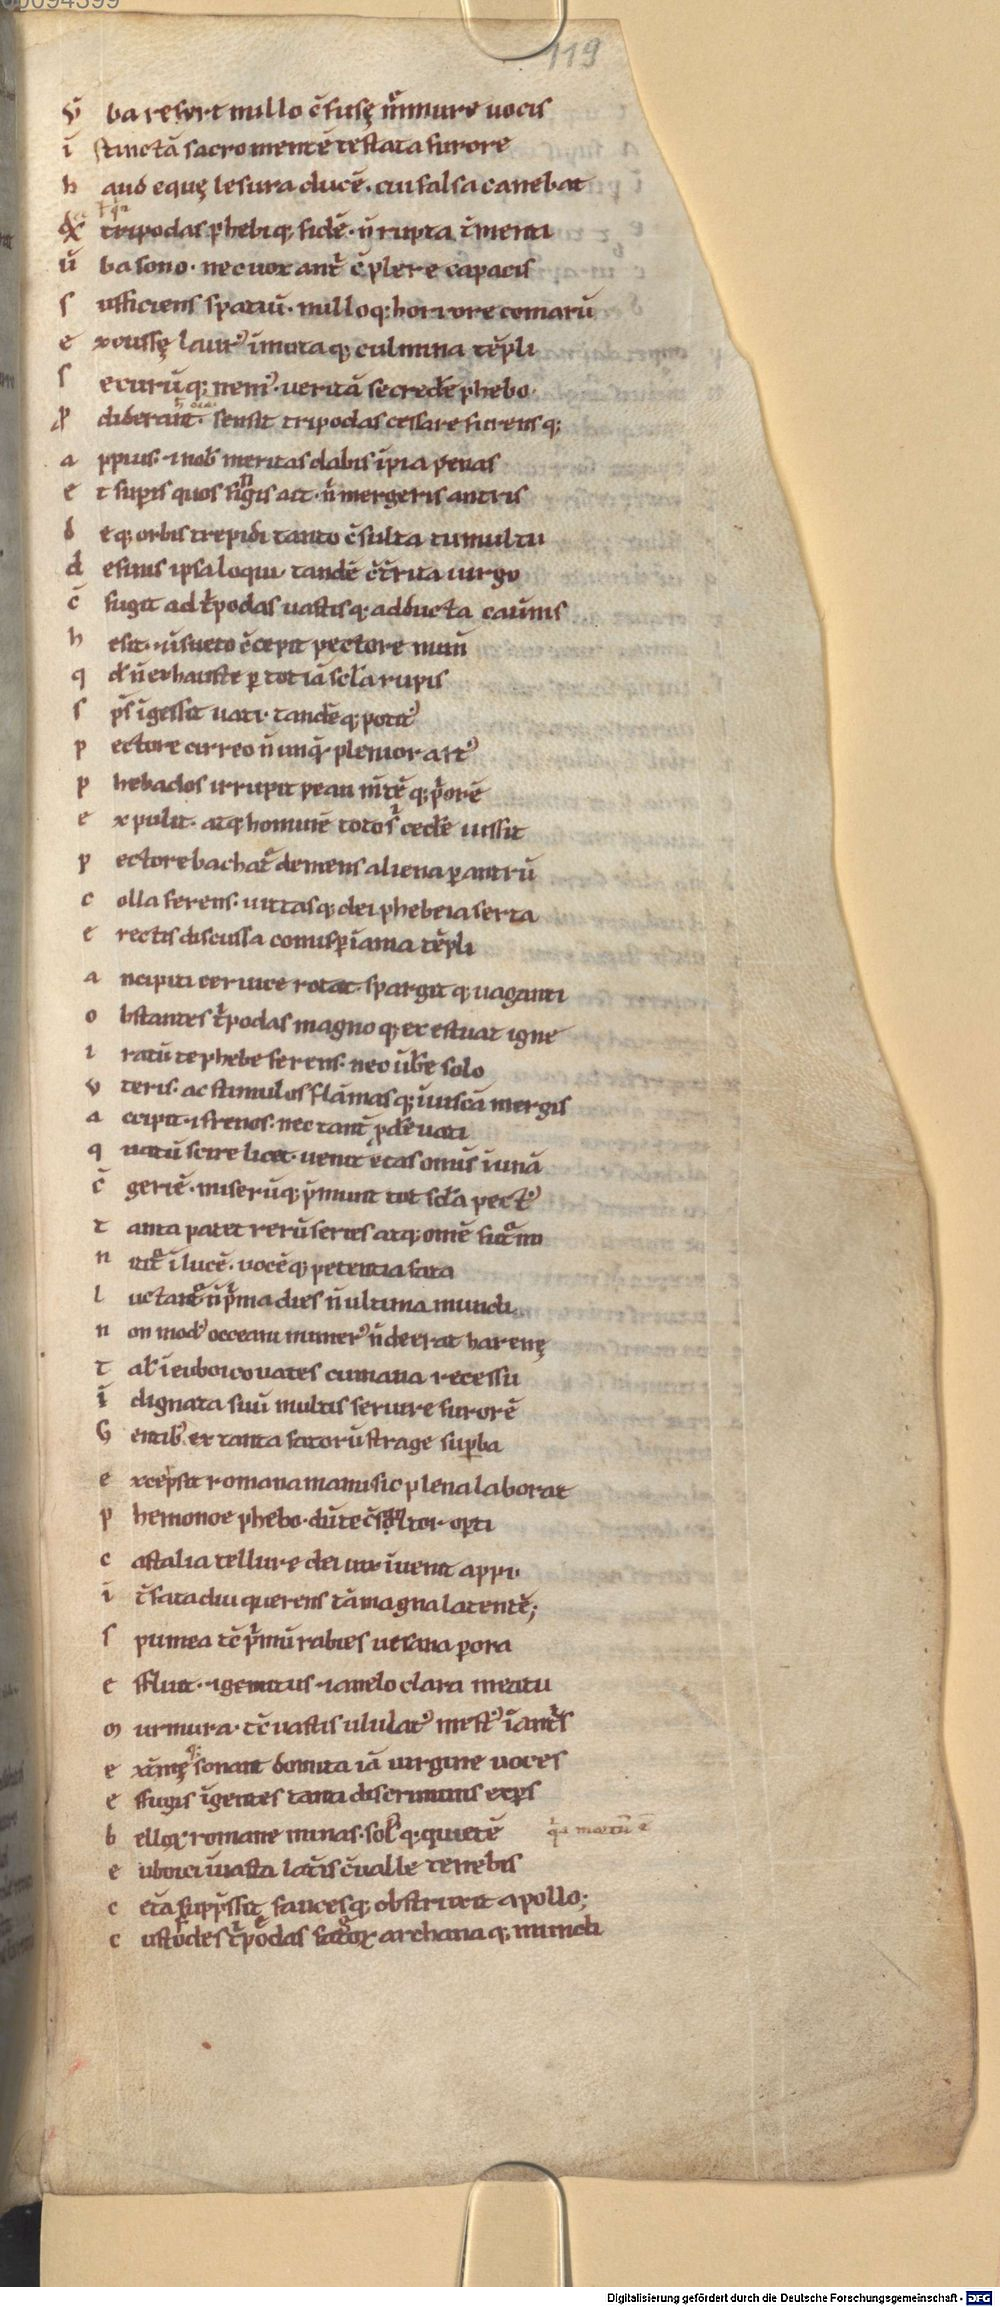 119
v̄ ba refert nullo c̄fusę m̄mure uocis
i stinctā sacro mentē testata furore
h aud equę lesura ducē. cui falsa canebat
Q̄ tripodas phebiq; fidē. n̄ rupta t̄menti
ū ba sono. nec uox ant̄ c̄plere capacis
s ufficiens spatiū. nulloq; horrore comarū
e xcussę laur᷒ īmotaq; culmina tēpli
s ecurūq; nem᷒. ueritā se credēe phebo.
p diderant. sensit tripodas cessare furensq;
a ppius. ⁊ nob᷒ meritas dabis īpia penas
e t supis quos fingis ait. n̄ mergeris antris
d eq; orbis trepidi tanto c̄sulta tumultu
d esinis ipsa loqui. tandē c̄t̄rita uirgo
c̄ fugit ad t̄podas uastisq; adducta cauīnis
h esit. ⁊ īsueto c̄cepit pectore num̄
q d̄ n̄ exhauste p tot iā scl̄a rupis
s p̄s īgessit uati. tandēq; potit᷒
p ectore cirreo n̄ unq̄ plenior art᷒
p hebados irrupit pean m̄tēq; p̄orē
e xpulit. atq; hominē toto s̄ cedēe iussit
p ectore bachat᷒ demens aliena p antrū
c olla ferens. uittasq; dei phebeia serta
e rectis discussa comis p īania tēpli
a ncipiti ceruice rotat. spargitq; uaganti
o bstantes t̄podas magnoq; exestuat igne
i ratū te phebe ferens. nec ūb̄e solo
v teris. ac stimulos flāmasq; ī uiscā mergis
a ccipit ⁊ frenos. nec tant̄ p̄dēe uati
q uatū scire licet. uenit ētas omīs ī unā
c̄ geriē. miserūq; p̄munt tot scl̄a pect᷒
t anta patet rerū series atq; omē futm̄
n itit᷒ ī lucē. uocēq; petentia fata
l uctant᷒ n̄ p̄ma dies n̄ ultima mundi
n on mod᷒ occeani numer᷒ n̄ deerat harenę
t al᷒ ī euboico uates cumana recessu
ī dignata suū multis seruire furorē
G entib᷒ ex tanta fatorū strage supba
e xcepsit romana manu sic plena laborat
p hemonoe phebo. dū te c̄sultor opti
c astalia tellure dei uix īuenit appi
i t̄ fata diu querens tā magna latentē;
s pumea tc̄ p̄mū rabies uesana p ora
e ffluit. ⁊ gemitus ⁊ anelo clara meatu
m urmura. tc̄ uastis ululat᷒ mest᷒ ī ant̄s
e xt̄męq; sonant domita iā uirgine uoces
e ffugis īgentes tanti discriminis exps
b elloꝝ romane minas. sol᷒q; quietē
e uboici uasta lat̄is c̄ualle tenebis
c et̄a supp̄ssit faucesq; obstruxit apollo;
c ustodes t̄podas fatoꝝ archanaq; mundi
Digitalisierung gefördert durch die Deutsche Forschungsgemeinschaft - DFG